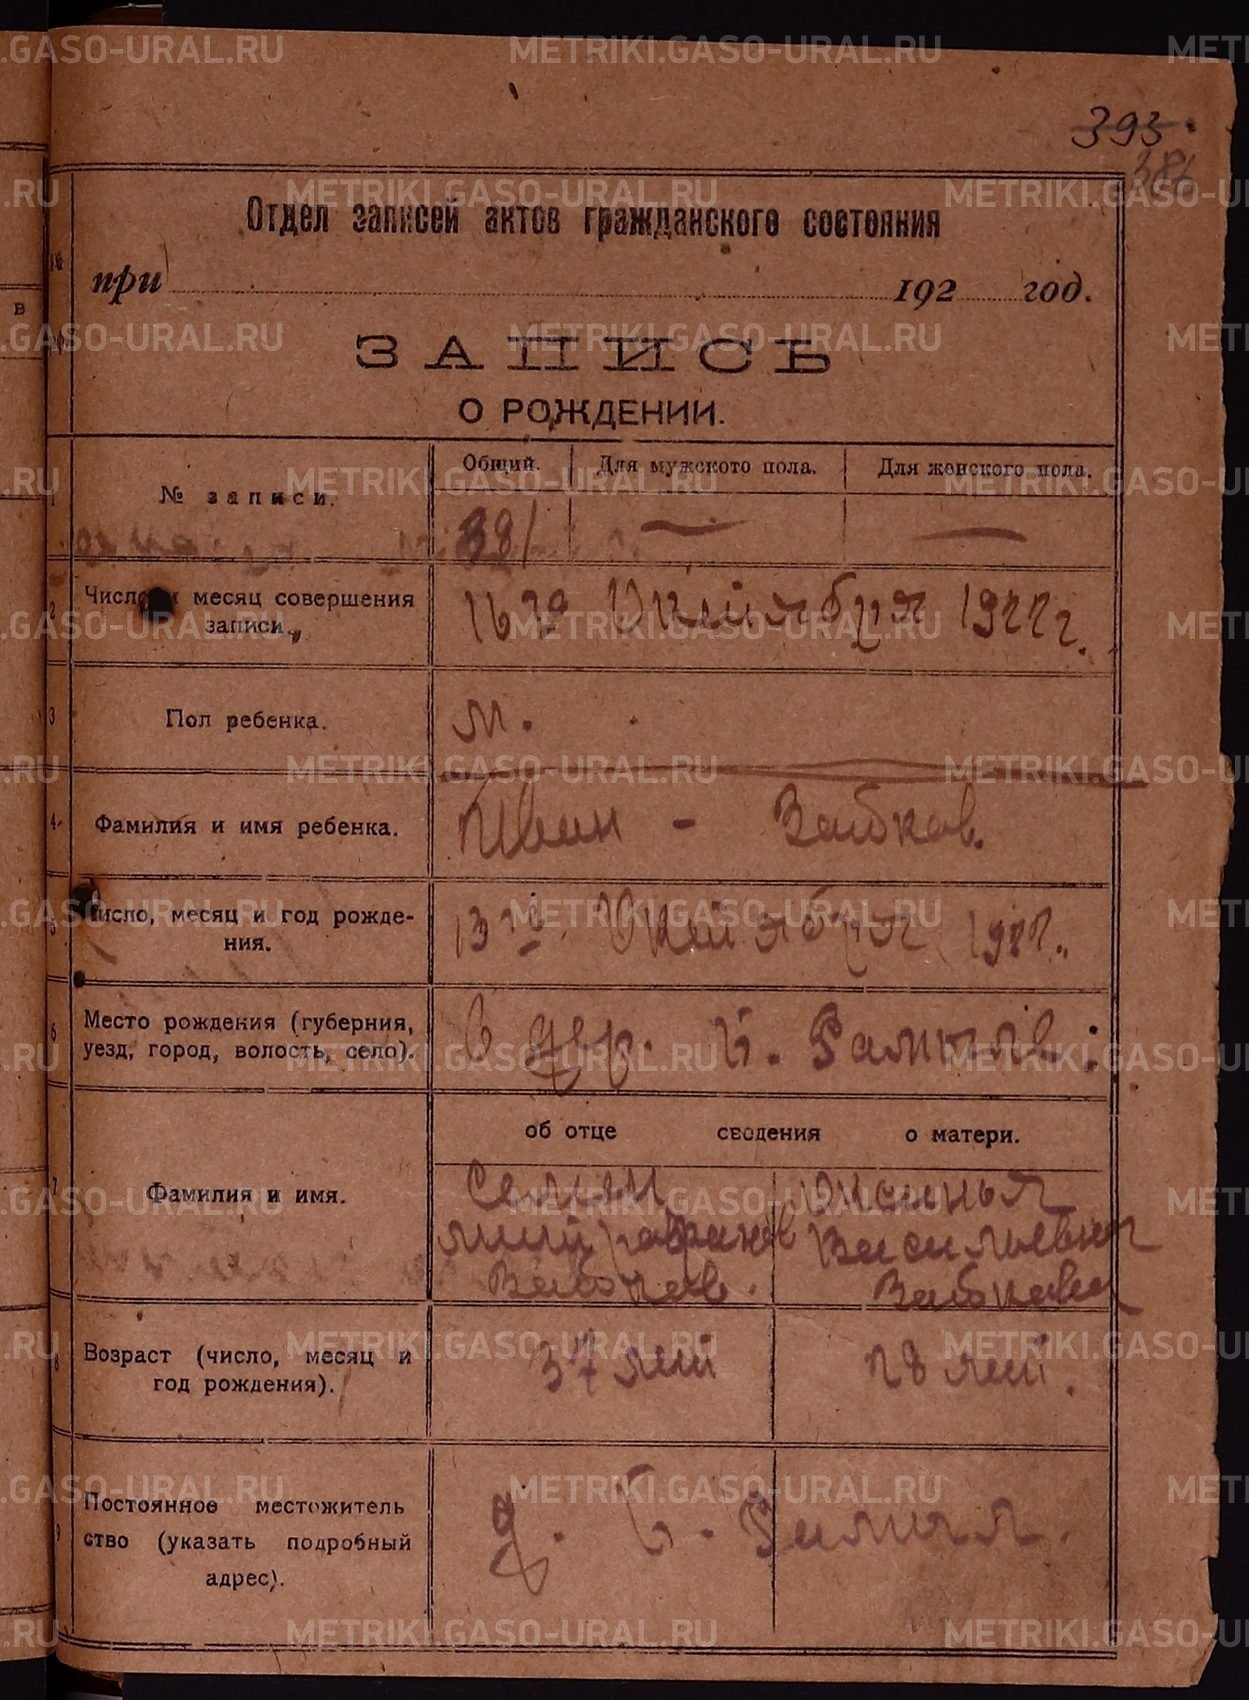 393.
386
Отдел записей актов гражданского состояния
при 192 год.
ЗАПИСЬ
О РОЖДЕНИИ.
Общий. Для мужского пола. Для женского пола.
1 № записи.
381 — —
2 Число и месяц совершения
записи.
16го Октября 1922 г.
3 Пол ребенка.
м.
4 Фамилия и имя ребенка.
Иван - Бабков.
5 Число, месяц и год рожде-
ния.
13го Октября 1922.
6 Место рождения (губерния,
уезд, город, волость, село).
в дер. Б. Рамыле
об отце сведения о матери.
7 Фамилия и имя.
Семен Аксинья
Митрофанов Васильевна
Бабков. Бабкова
8 Возраст (число, месяц и
год рождения).
37 лет 28 лет.
9 Постоянное местожитель
ство (указать подробный
адрес).
д. Б. Рамыл.
в
METRIKI.GASO-URAL.RU